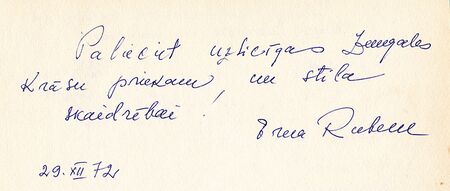 Palieciet uzticīgas Zemgales
Krāsu priekam, un stila
skaidrībai!
Erna Rubene
29. XII 72